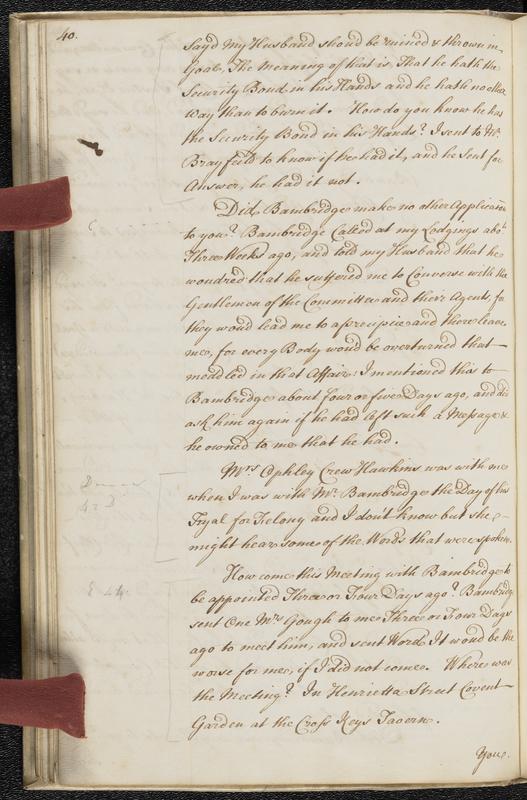 40.
Sayd my Husband should be ruined & thrown in
Goal, The meaning of that is, That he hath the
Security Bond in his Hands and he hath no other
way than to burn it. How do you know he has
the Security Bond in his Hands? I sent to Mr.
Brayfeild to know if he had it, and he Sent for
Answer, he had it not.
Did Bambridge make no other Application
to you? Bambridge Called at my Lodgings abot
Three Weeks ago, and told my Husband that he
wondred that he suffered me to Converse with the
Gentlemen of the Committee and their Agents, for
they woud lead me to a precipice and there leave
me, for every Body woud be overturned that
meadled in that Affair: I mentioned this to
Bambridge about four or five Days ago, and did
ask him again if he had left such a Message &
he owned to me that he had.
Mrs Crew Hawkins was with me
when I was with Mr. Bambridge the Day of his
Tryal for Felony and I don't know but she
might hear some of the Words that were spoken.
How come this Meeting with Bambridge to
be appointed Three or Four Days ago? Bambridge
sent One Mrs Gough to me Three or Four Days
ago to meet him, and sent Word It woud be the
worse for me, if I did not come. Where was
the Meeting? In Henrietta Street Covent
Garden at the Cross Keys Tavern.
You.